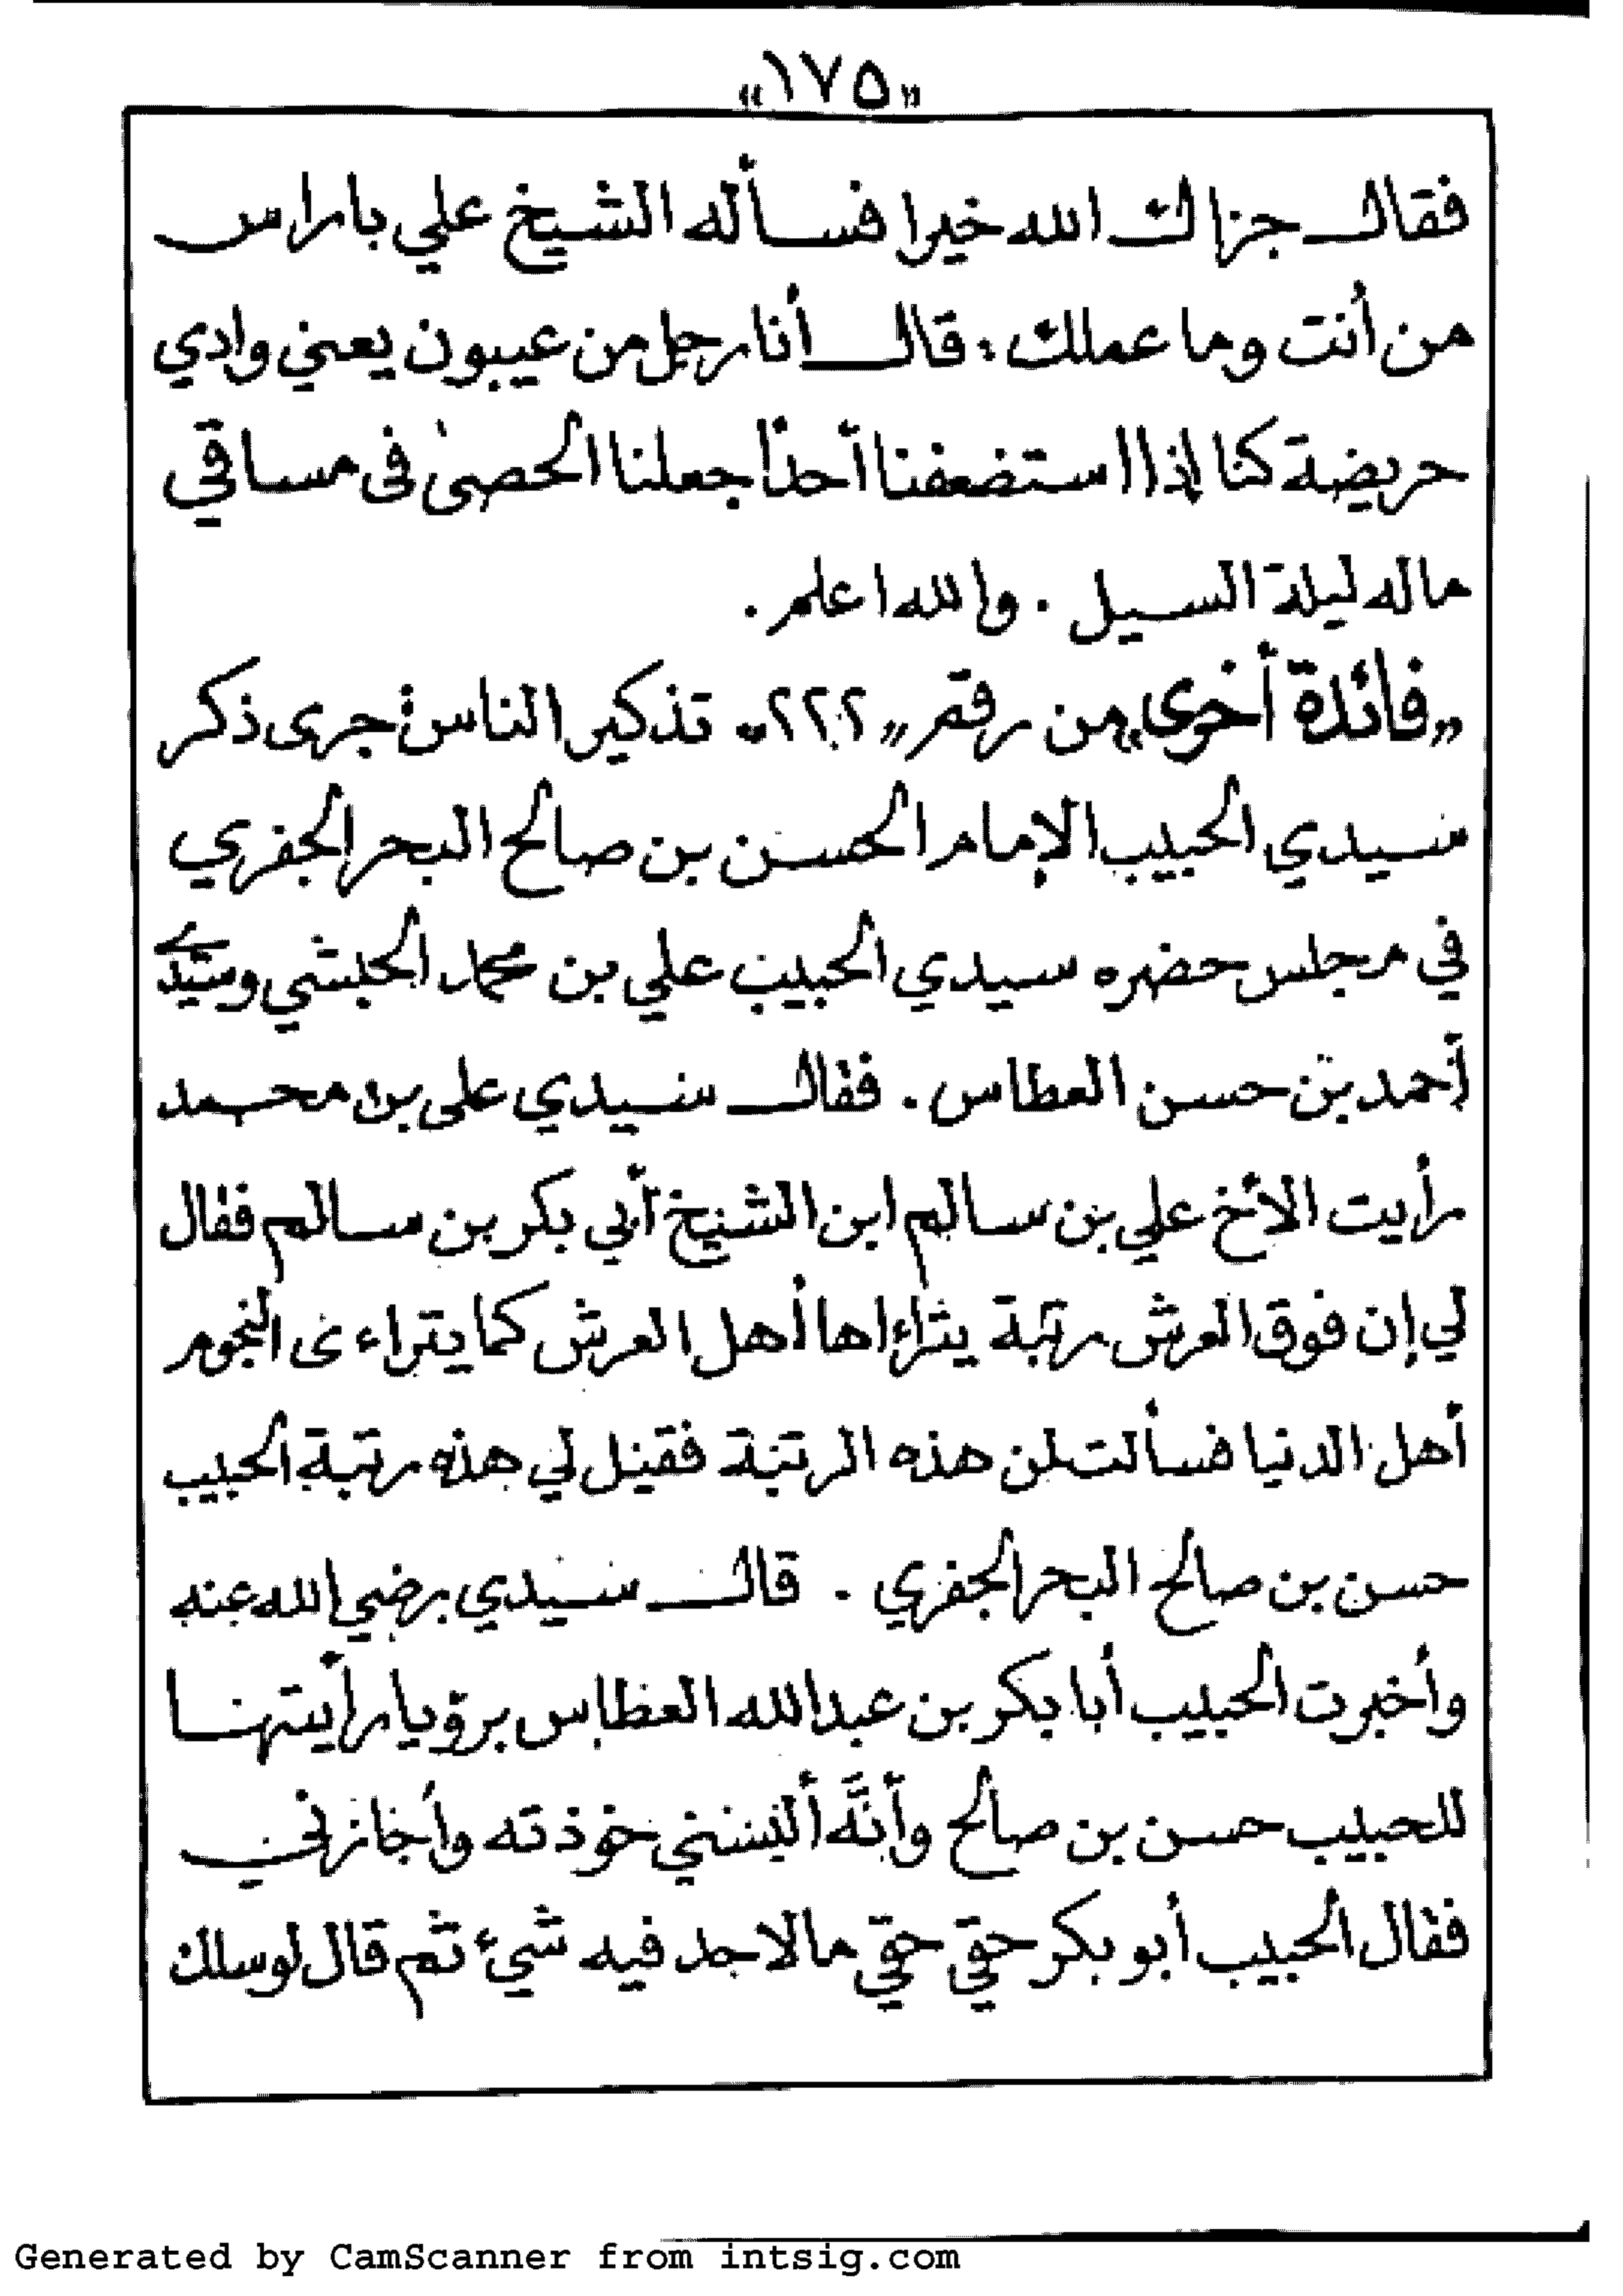 «١٧٥»
فقال جزاك الله خيرا فسأله الشيخ علي باراس
من أنت وما عملك، قال أنا رجل من عيبون يعني وادي
حريضة كنا إذا استضعفنا أحدًا جعلنا الحصى في مساقي
ماله ليلة السيل. والله اعلم.
«فائدة أخرى» من رقم «٢٢٢» تذكير الناس: جرى ذكر
سيدي الحبيب الإمام الحسن بن صالح البحر الجفري
في مجلس حضره سيدي الحبيب علي بن محمد الحبشي وسيدي
أحمد بن حسن العطاس. فقال سيدي علي بن محمد
رأيت الأخ علي بن سالم ابن الشيخ أبي بكر بن سالم فقال
لي إن فوق العرش رتبة يتراءاها أهل العرش كما يتراءى النجوم
أهل الدنيا فسألت لمن هذه الرتبة فقيل لي هذه رتبة الحبيب
حسن بن صالح البحر الجفري. قال سيدي رضي الله عنه
وأخبرت الحبيب أبا بكر بن عبدالله العطاس برؤيا رأيتها
للحبيب حسن بن صالح وأنَّه ألبسني خوذته وأجازني
فقال الحبيب أبو بكر حقي حقي ما لاحد فيه شيء ثم قال لو سلك
Generated by CamScanner from intsig.com